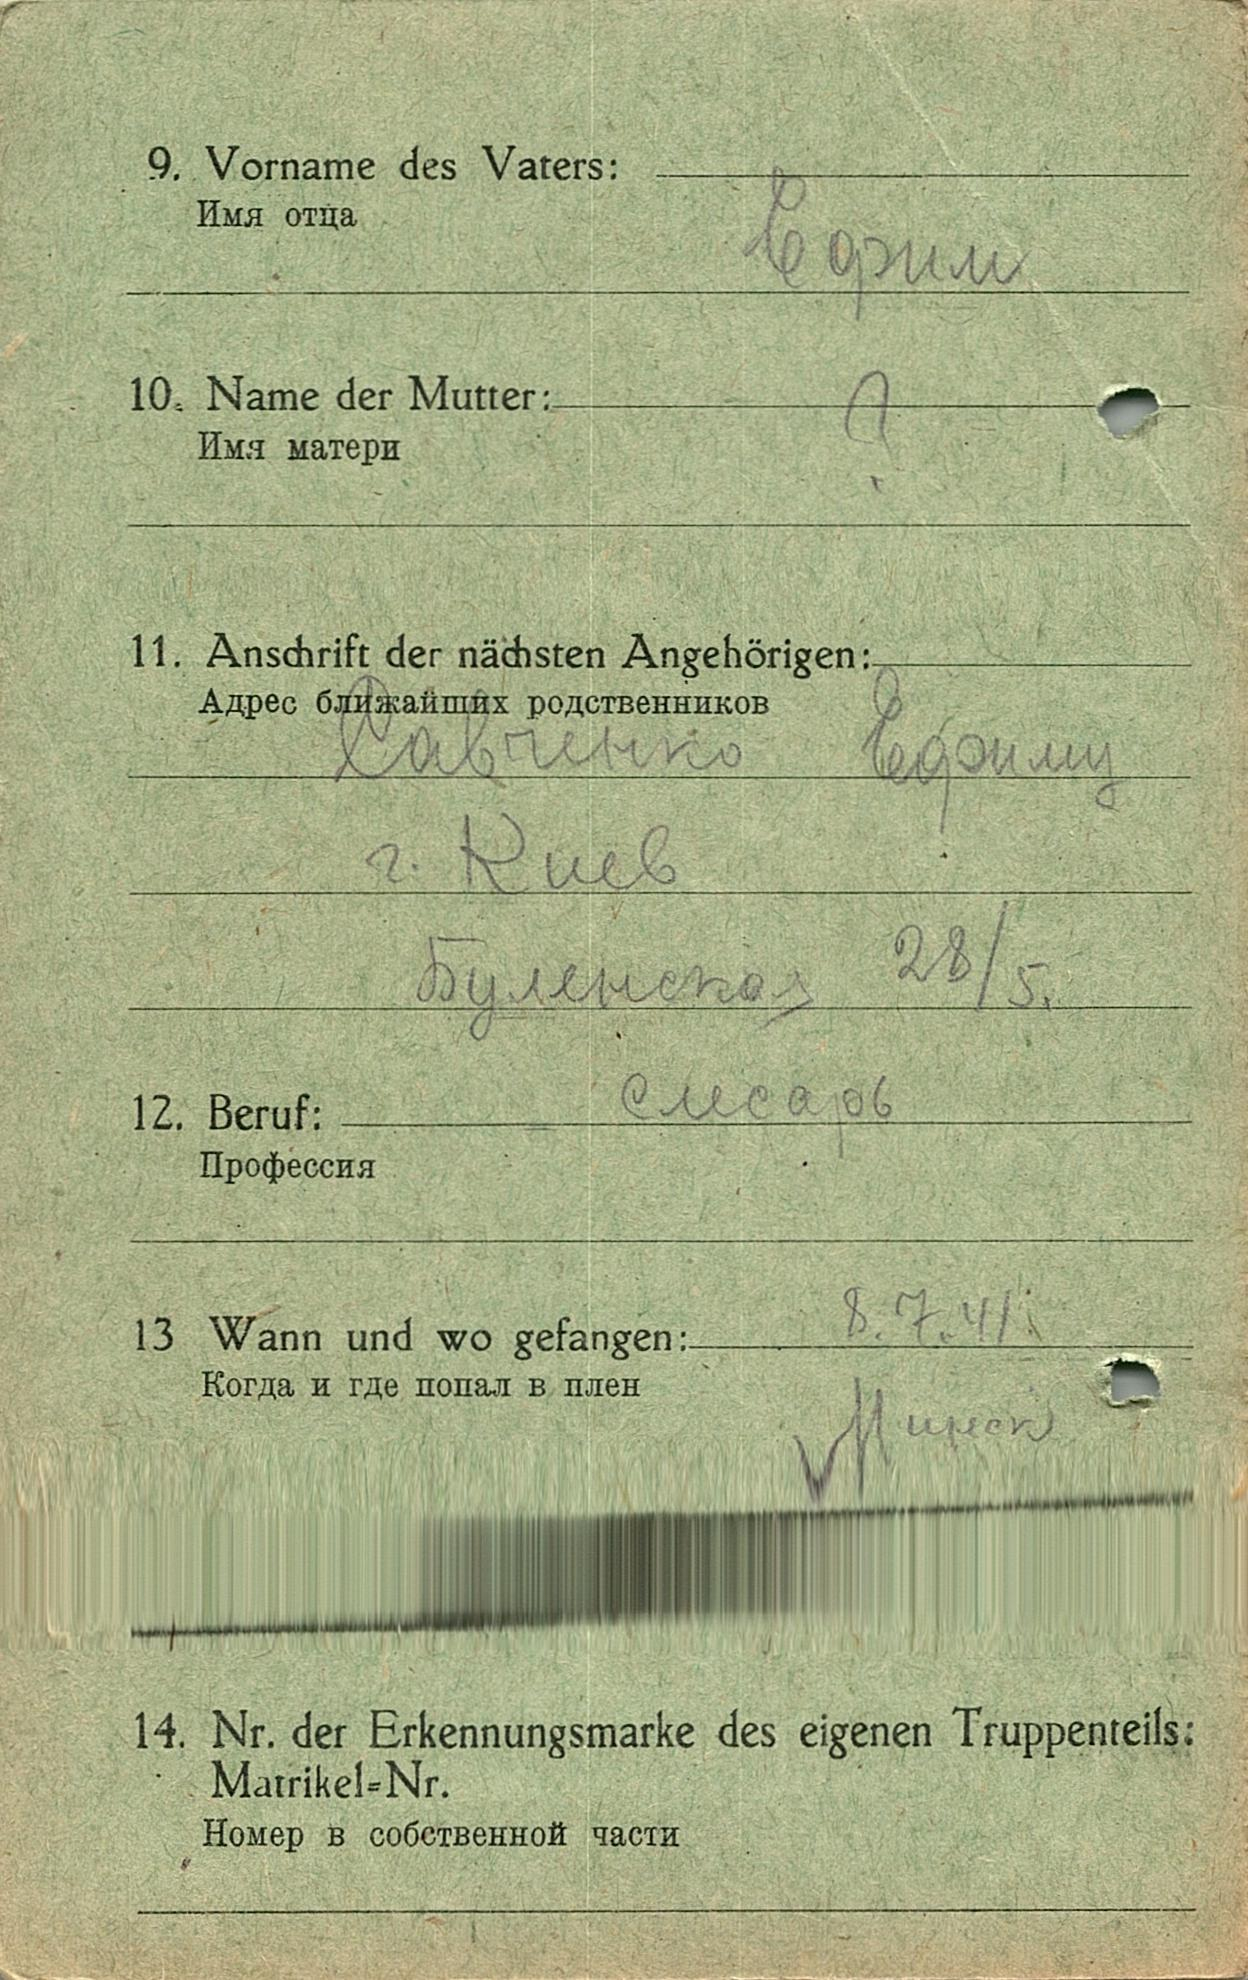 9. Vorname des Vaters:
Имя отца
Ефим
10. Name der Mutter:
?
Имя матери
11. Anschrift der nächsten Angehörigen:
Адрес ближайших родственников
Савченко Ефиму
г. Киев
Буленская 28/5.
12. Beruf: слесарь
Профессия
13 Wann und wo gefangen: 8.7.41
Когда и где попал в плен
Минск
14. Nr. der Erkennungsmarke des eigenen Truppenteils:
Matrikel=Nr.
Номер в собственной части